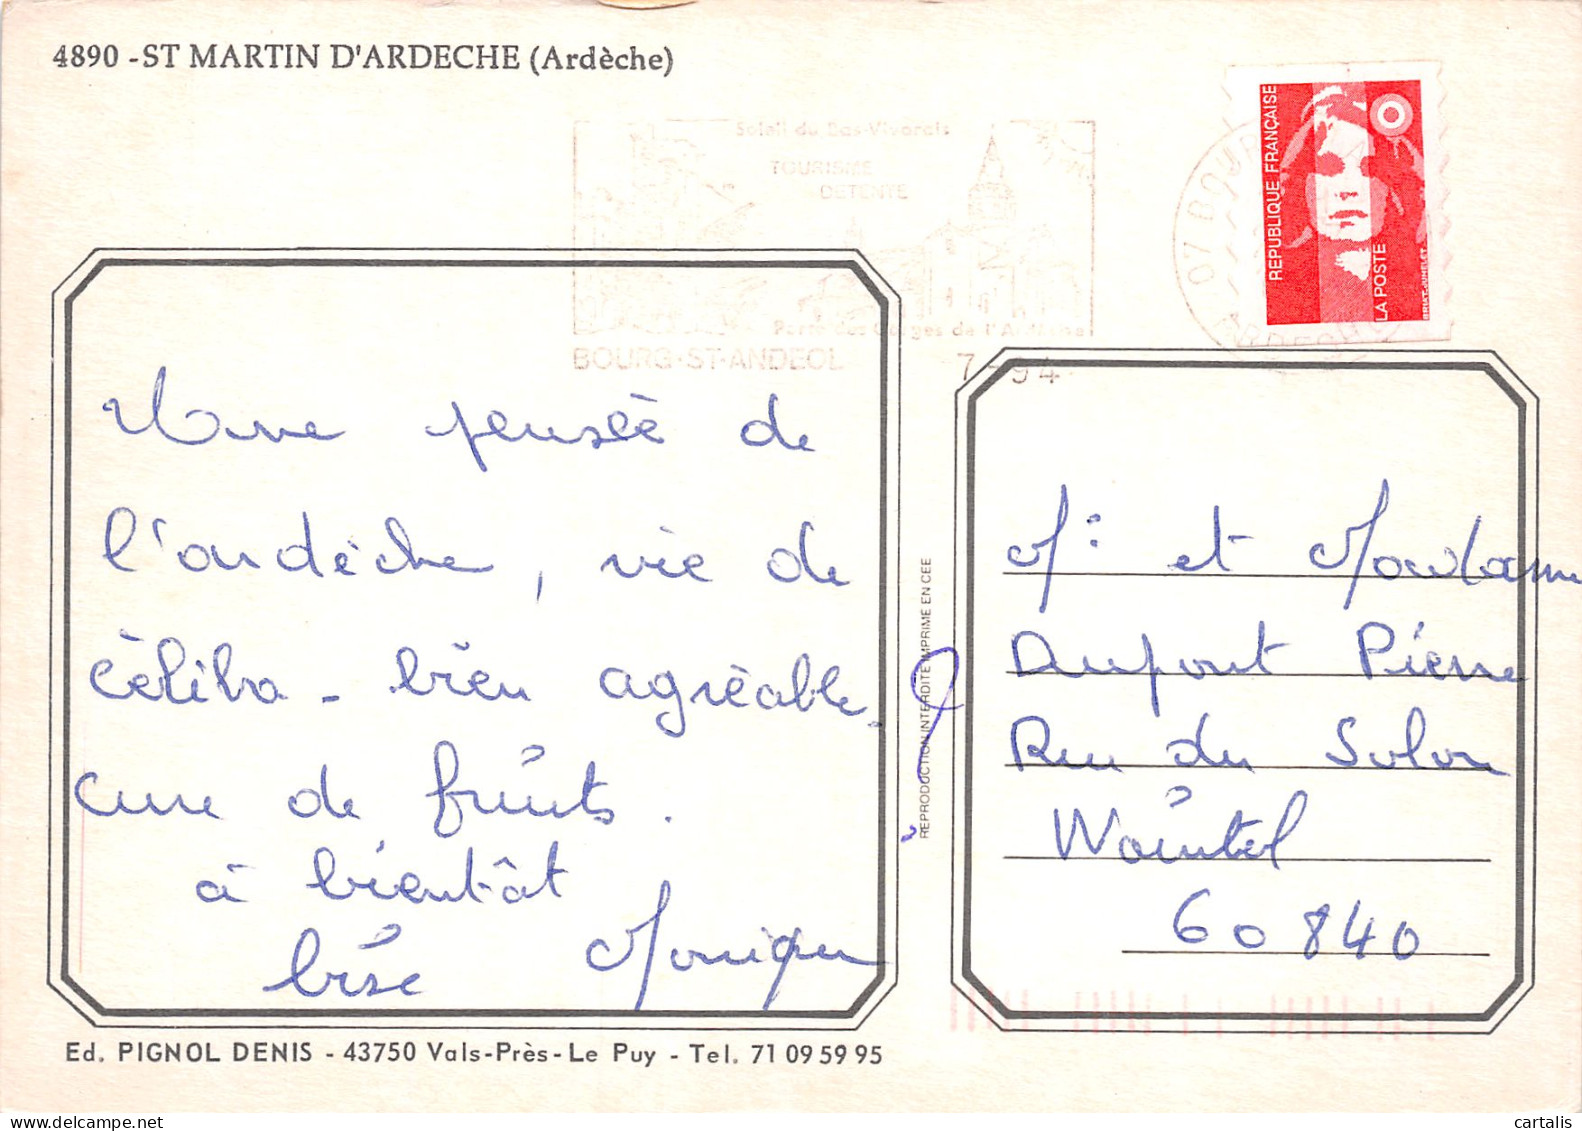 4890 - ST MARTIN D'ARDECHE (Ardèche)
Soleil du Bas-Vivarais
TOURISME
DETENTE
Porte des Gorges de l'Ardèche
BOURG-ST-ANDEOL
7-94
07 BOURG
ARDECHE
REPUBLIQUE FRANÇAISE
LA POSTE
BRIAT-JUMELET
Une pensée de
l'ardèche, vie de
céliba - bien agréable.
cure de fruits.
à bientôt
bise Monique
REPRODUCTION INTERDITE IMPRIME EN CEE
Mr et Madame
Dupont Pierre
Rue du Sulon
Wointel
60840
Ed. PIGNOL DENIS - 43750 Vals-Près-Le Puy - Tel. 71 09 59 95
cartalis